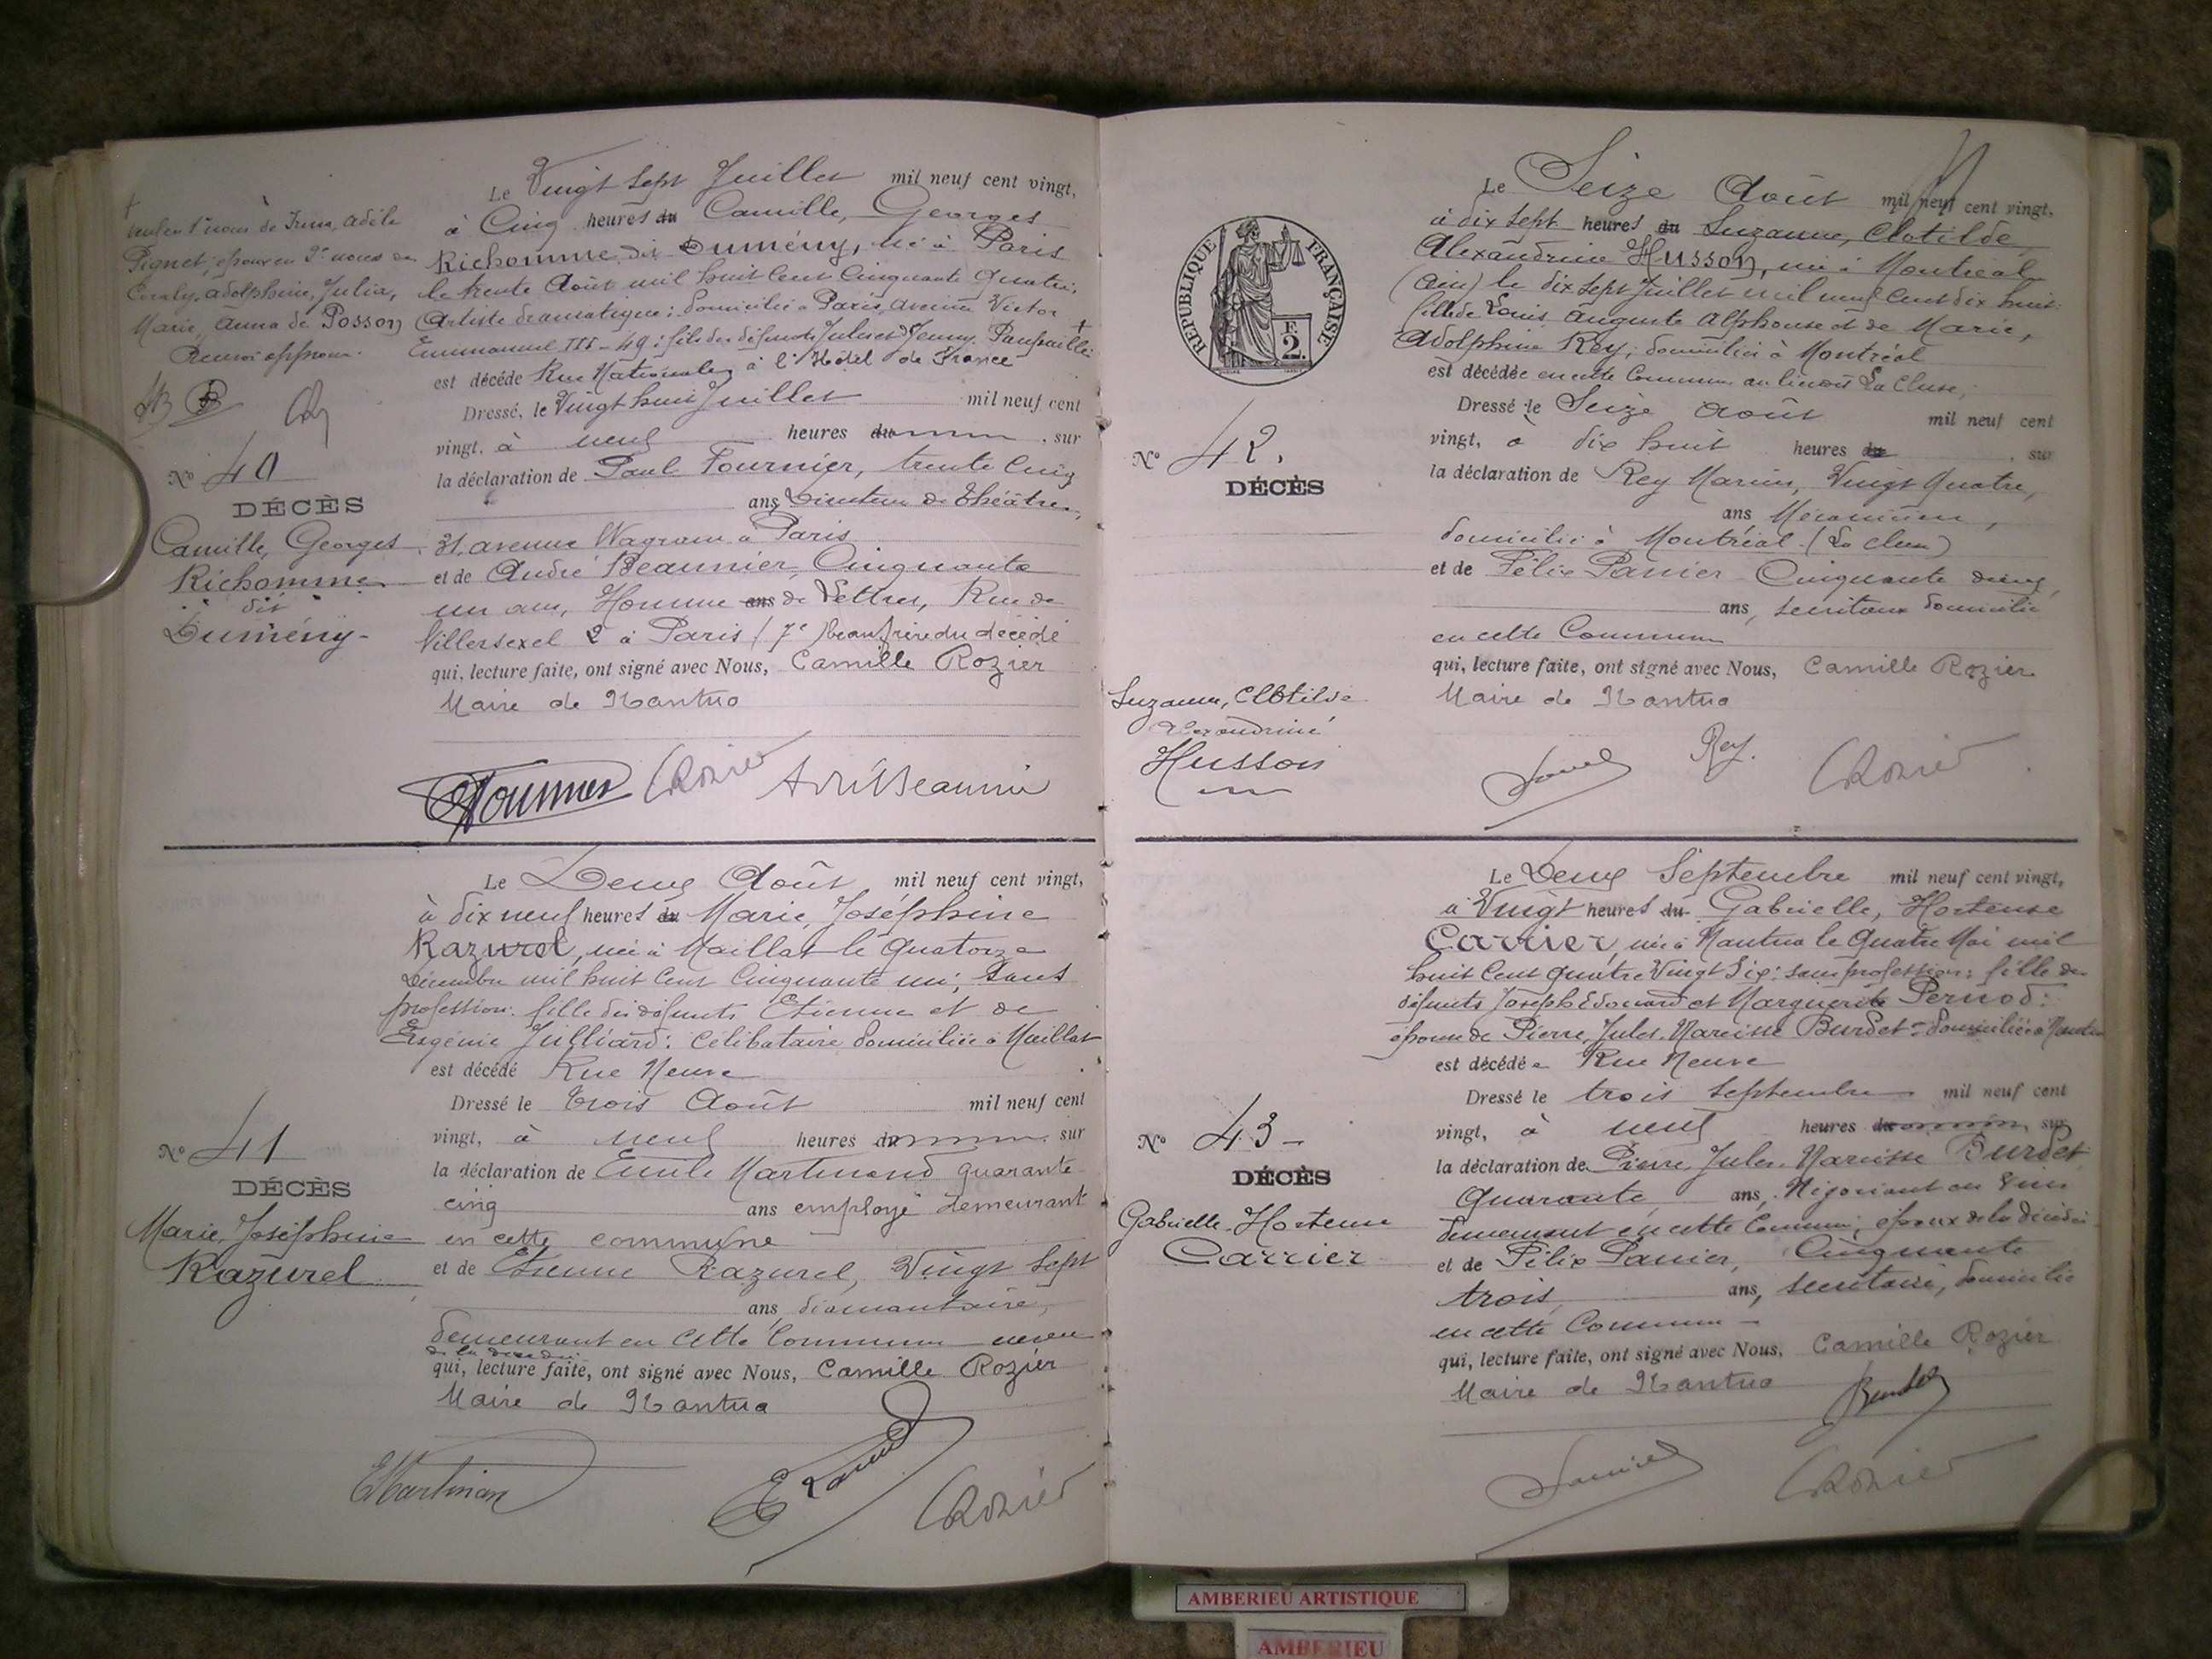 Le Vingt sept Juillet mil neuf cent vingt,
à Cinq heures du Camille, Georges
Richomme dit Dumény, né à Paris
le trente Août mil huit cent Cinquante Quatre,
Artiste dramatique; domicilié à Paris, avenue Victor
Emmanuel III - 49; fils des défunts Jules et de Jenny
est décédé Rue Nationale, à l'Hôtel de France
Dressé, le Vingt huit Juillet mil neuf cent
vingt, à neuf heures du , sur
la déclaration de Paul Fournier, trente cinq
ans Directeur de Théâtre,
31, avenue Wagram à Paris
et de André Beaunier, Cinquante
un ans, Homme ans de Lettres, Rue de
Villersexel 2 à Paris (7e beau frère du décédé
qui, lecture faite, ont signé avec Nous, Camille Rozier
Maire de Nantua
Fournier CRozier André Beaunier
+
veuf en 1e noces de Irma, Adèle
Pignet, époux en 2e noces de
Coraly, Adolphine, Julia,
Marie, Anna de Posson
Renvoi approuvé.
No 40
DÉCÈS
Camille, Georges
Richomme
dit
Dumény
Le Deux Août mil neuf cent vingt,
à dix neuf heures du Marie, Joséphine
Razurel, née à Maillat le Quatorze
Décembre mil huit cent Cinquante un; Sans
profession: fille des défunts Etienne et de
Eugénie Julliard: Célibataire domiciliée à Maillat
est décédé Rue Neuve
Dressé le trois Août mil neuf cent
vingt, à neuf heures du , sur
la déclaration de Emile Martinand quarante
cinq ans employé demeurant
en cette commune
et de Etienne Razurel, Vingt Sept
ans, diamantaire,
demeurant en cette Commune neveu
de la décédée
qui, lecture faite, ont signé avec Nous, Camille Rozier
Maire de Nantua
EMartinan CRozier
No 41
DÉCÈS
Marie, Joséphine
Razurel
Le Seize Août mil neuf cent vingt,
à dix sept heures du Suzanne, Clotilde,
Alexandrine Husson, née à Montréal
(Ain) le dix sept Juillet mil neuf cent dix huit
fille de Louis Auguste Alphonse et de Marie,
Adolphine Rey; domiciliée à Montréal
est décédée en cette Commune au lieu dit La Cluse,
Dressé le Seize Août mil neuf cent
vingt, à dix huit heures du , sur
la déclaration de Rey Marius, Vingt Quatre,
ans Mécanicien,
domicilié à Montréal (La Cluse)
et de Félix Panier Cinquante deux
ans, secrétaire domicilié
en cette Commune
qui, lecture faite, ont signé avec Nous, Camille Rozier
Maire de Nantua
Rey. CRozier
RÉPUBLIQUE FRANÇAISE
F.
2.
No 42.
DÉCÈS
Suzanne, Clotilde
Alexandrine
Husson
Le Deux Septembre mil neuf cent vingt,
à Vingt heures du Gabrielle, Hortense
Carrier, née à Nantua le Quatre Mai mil
huit cent quatre Vingt Six: sans profession: fille des
défunts Joseph Edouard et Marguerite Pernod:
épouse de Pierre, Jules, Narcisse Burdet - domiciliée à Nantua
est décédée Rue Neuve
Dressé le trois Septembre mil neuf cent
vingt, à neuf heures du , sur
la déclaration de Pierre, Jules, Narcisse Burdet
Quarante ans, Négociant en Vins
demeurant en cette Commune, époux de la décédée
et de Félix Panier, Cinquante
trois, ans, secrétaire, domicilié
en cette Commune
qui, lecture faite, ont signé avec Nous, Camille Rozier
Maire de Nantua
Burdet
CRozier
No 43
DÉCÈS
Gabrielle Hortense
Carrier
AMBERIEU ARTISTIQUE
AMBERIEU